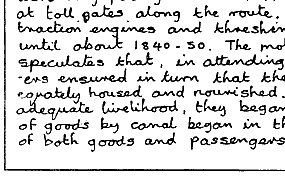 at toll gates along the route.
traction engines and threshin
until about 1840-50. The mo
speculates that, in attending
-ers ensured in turn that the
equately housed and nourished.
adequate livelihood, they began
of goods by canal began in th
of both goods and passengers